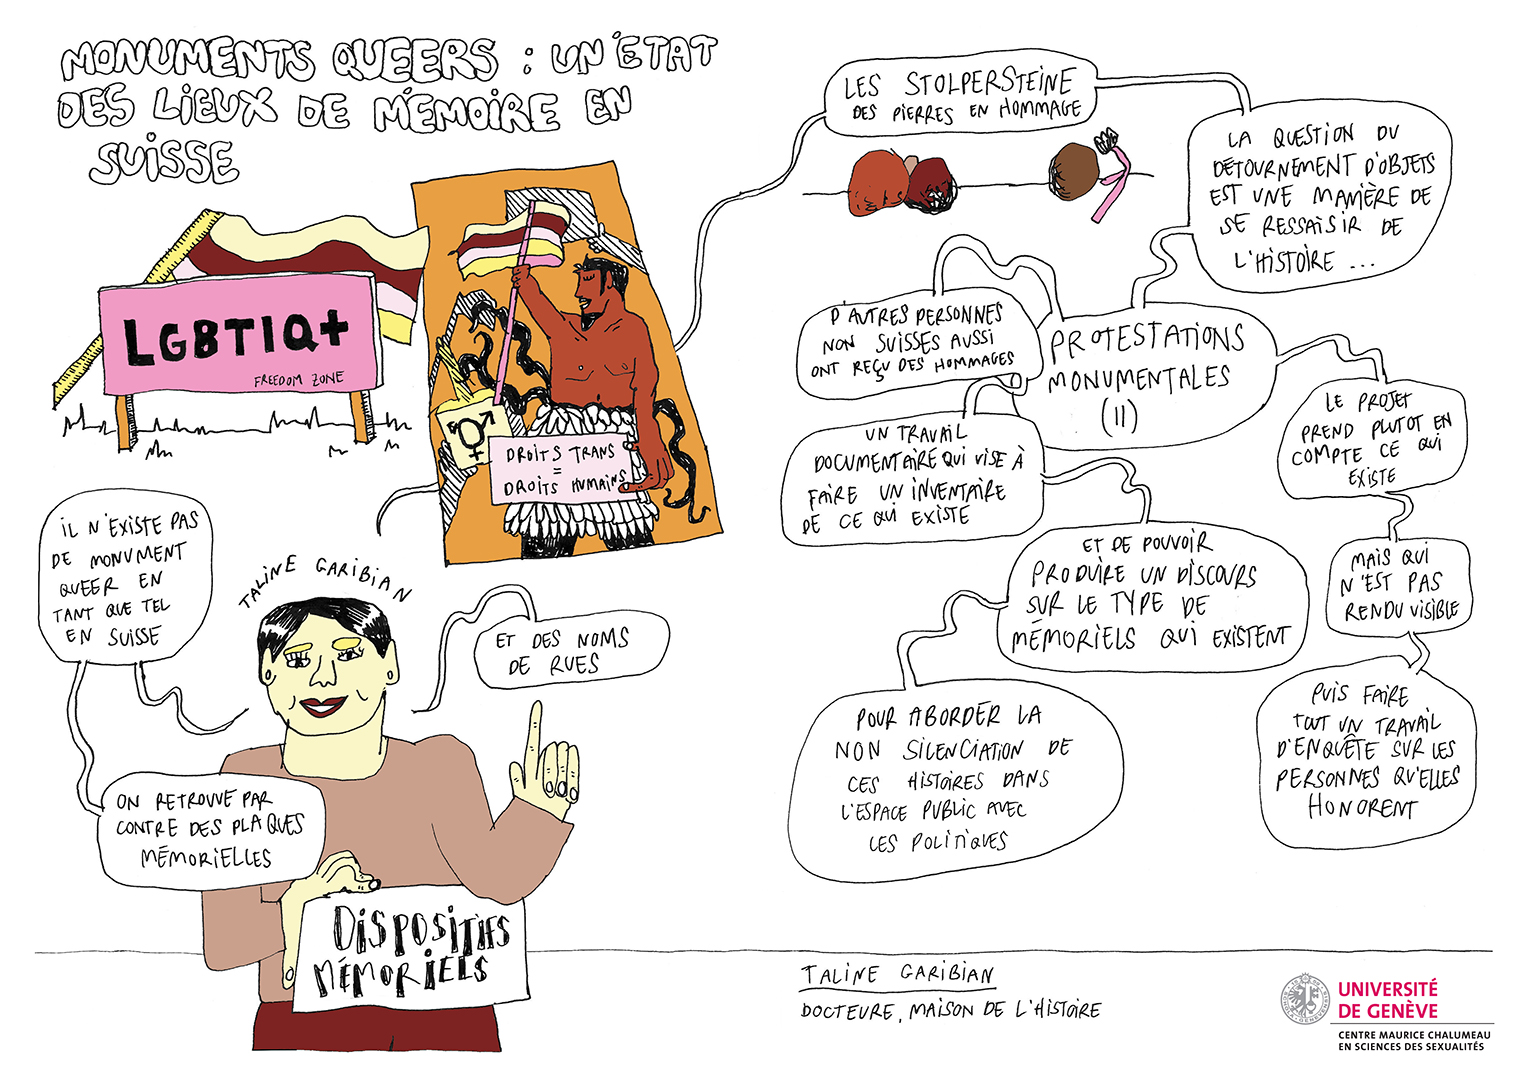 MONUMENTS QUEERS : UN ÉTAT
DES LIEUX DE MÉMOIRE EN
SUISSE
LGBTIQ+
FREEDOM ZONE
DROITS TRANS
=
DROITS HUMAINS
IL N'EXISTE PAS
DE MONUMENT
QUEER EN
TANT QUE TEL
EN SUISSE
TALINE GARIBIAN
ET DES NOMS
DE RUES
ON RETROUVE PAR
CONTRE DES PLAQUES
MÉMORIELLES
DISPOSITIFS
MÉMORIELS
LES STOLPERSTEINE
DES PIERRES EN HOMMAGE
LA QUESTION DU
DÉTOURNEMENT D'OBJETS
EST UNE MANIÈRE DE
SE RESSAISIR DE
L'HISTOIRE ...
D'AUTRES PERSONNES
NON SUISSES AUSSI
ONT REÇU DES HOMMAGES
PROTESTATIONS
MONUMENTALES
(II)
UN TRAVAIL
DOCUMENTAIRE QUI VISE À
FAIRE UN INVENTAIRE
DE CE QUI EXISTE
LE PROJET
PREND PLUTOT EN
COMPTE CE QUI
EXISTE
ET DE POUVOIR
PRODUIRE UN DISCOURS
SUR LE TYPE DE
MÉMORIELS QUI EXISTENT
MAIS QUI
N'EST PAS
RENDU VISIBLE
POUR ABORDER LA
NON SILENCIATION DE
CES HISTOIRES DANS
L'ESPACE PUBLIC AVEC
LES POLITIQUES
PUIS FAIRE
TOUT UN TRAVAIL
D'ENQUÊTE SUR LES
PERSONNES QU'ELLES
HONORENT
TALINE GARIBIAN
DOCTEURE, MAISON DE L'HISTOIRE
UNIVERSITÉ
DE GENÈVE
CENTRE MAURICE CHALUMEAU
EN SCIENCES DES SEXUALITÉS